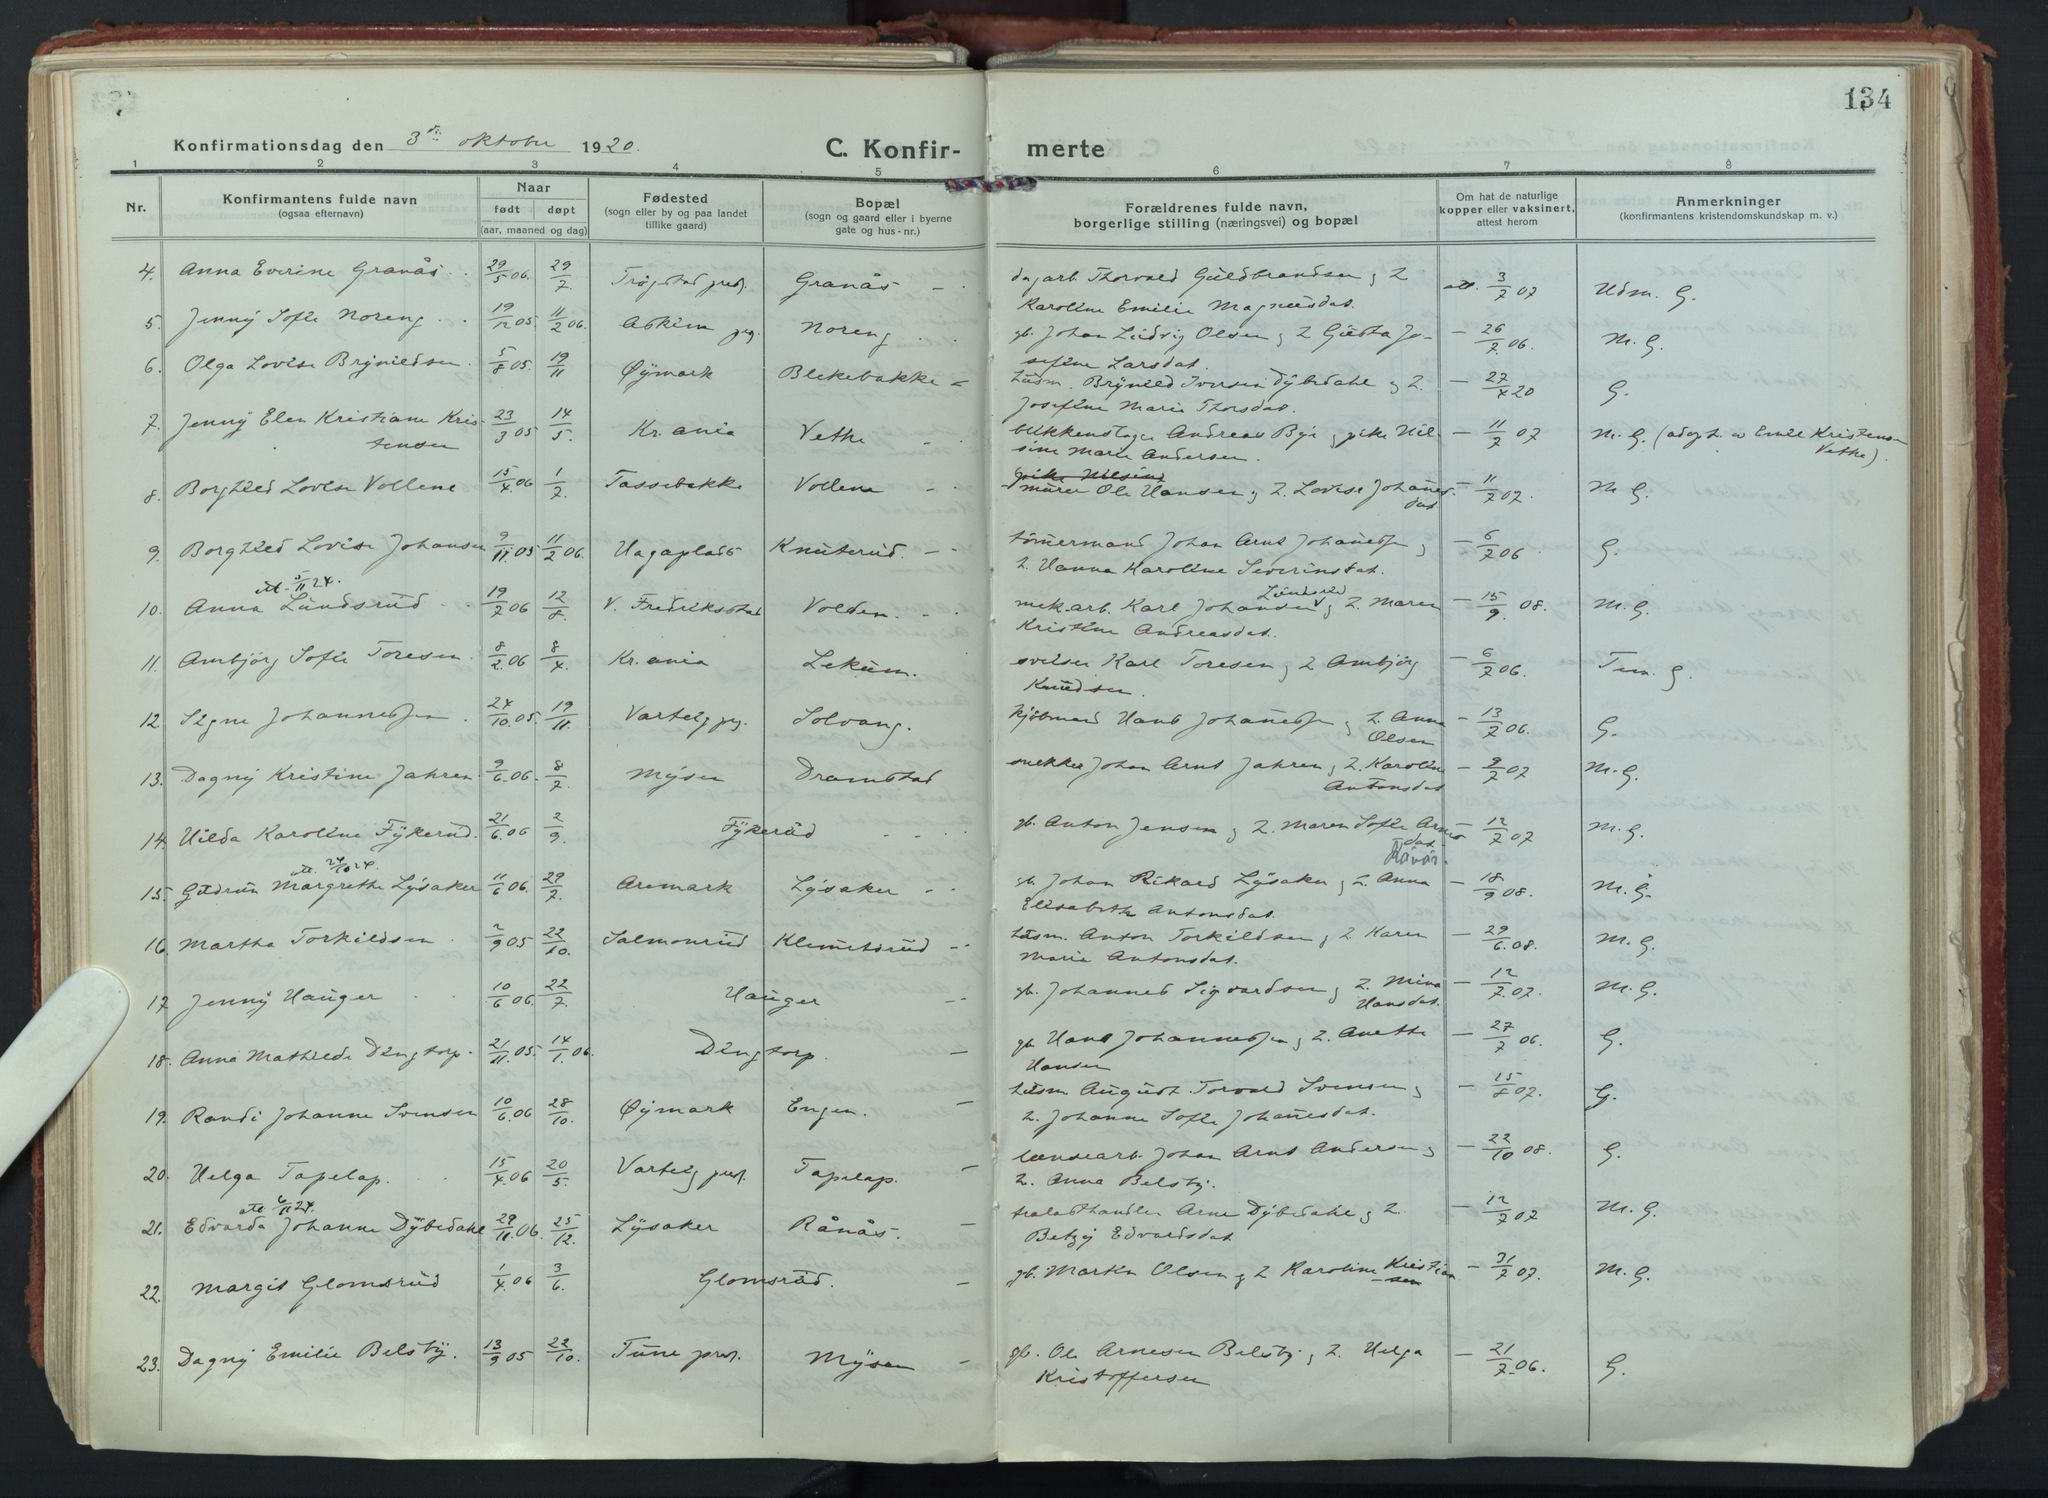 134
Konfirmationsdag den 3die oktober 1920.
C. Konfir-merte
1 2 3 4 5 6 7 8
Nr.
Konfirmantens fulde navn
(ogsaa efternavn)
Naar
født døpt
(aar, maaned og dag)
Fødested
(sogn eller by og paa landet
tillike gaard)
Bopæl
(sogn og gaard eller i byerne
gate og hus-nr.)
Forældrenes fulde navn,
borgerlige stilling (næringsvei) og bopæl
Om hat de naturlige
kopper eller vaksinert,
attest herom
Anmerkninger
(konfirmantens kristendomskundskap m. v.)
4. Anna Everine Granås. 29/5 06. 29/7. Trøgstad prest. Granås – dagarb. Thorvald Guldbrandsen og h. att. 3/7 07 Udm. G.
Karoline Emilie Magnusdat.
5. Jenny Sofie Noreng. 19/12 05. 11/2 06. Askim pg. Noreng gb. Johan Ludvig Olsen og h. Gusta Jo- – 26/7. 06. M. G.
sefine Larsdat.
6. Olga Lovise Brynildsen. 5/8 05. 19/11 Øymark Blekebakke – husm. Brynild Iversen Dybedahl og h. – 27/4 20 G.
Josefine Marie Thorsdat.
7. Jenny Elen Kristiane Kris- 23/3 05. 14/5. Kr.ania Vethe – blikkenslager Andreas Bye og pike Nil- – 11/7 07 M. G. (adopt. av Emil Kristensen
tensen sine Marie Andersen. Vethe).
8. Borghild Lovise Vollene 15/4. 06 1/7. Tassebekke Vollene – pike Nilsine
murer Ole Hansen og h. Lovise Johannes- – 11/7 07. M G.
dat.
9. Borghild Lovise Johansen 9/11. 05. 11/2 06. Hagaplads Knuterud. – tømmermand Johan Arnt Johannessen og – 6/7 06. G.
h. Hanna Karoline Severinsdat.
att. 5/11 24.
10. Anna Lundsrud. 19/7 06 12/8. V. Fredriksstad Volden. – mek.arb. Karl Johansen Lundsrud og h. Maren – 15/9. 08. M. G.
Kristine Andreasdat.
11. Ambjørg Sofie Toresen. 8/2. 06 8/4. Kr.ania Lekum. sveiser Karl Toresen og h. Ambjørg – 6/7 06. Tem. G.
Knudsen.
12. Signe Johannessen. 24/10. 05. 19/11. Varteig pg. Solvang. kjøbmand Hans Johannessen og h. Anna – 13/7 06. G.
Olsen
13. Dagny Kristine Jahren 9/6. 06. 8/7. Mysen Dramstad snekker Johan Arnt Jahren og h. Karoline – 9/7 07 M. G.
Antonsdat
14. Hilda Karoline Fykerud. 21/6. 06 2/9. Fykerud gb. Anton Jensen og h. Maren Sofie Arnes- – 12/7 07 M. G.
dat.
att. 24/10 24. Rånås.
15. Gudrun Margrethe Lysaker 11/6 06. 29/7. Aremark Lysaker – gb. Johan Rikard Lysaker og h. Anna – 18/9 08. M. G.
Elisabeth Antonsdat.
16. Martha Torkildsen 2/9 05 22/10. Salmonrud Klemetsrud – husm. Anton Torkildsen og h. Karen – 29/6. 08. M. G.
Marie Antonsdat.
17 Jenny Hauger 10/6 06. 22/7. Hauger – gb. Johannes Sigvardsen og h. Mina – 12/7. 07. M. G.
Hansdat.
18. Anna Mathilde Dingtorp. 21/11. 05. 14/1. 06. Dingtorp. – gb. Hans Johannessen og h. Anette – 27/7 06. G.
Hansen
19. Randi Johanne Svensen 10/6. 06 28/10. Øymark Engen. husm August Torvald Svensen og – 15/8 07. G.
h. Johanne Sofie Johannesdat.
20. Helga Tapelap. 15/4. 06 20/5. Varteig prest. Tapelap. – lænsearb. Johan Arnt Andersen og – 22/10 08. G.
h. Anna Belsby.
att. 6/11 24.
21. Edvarda Johanne Dybedahl 29/11. 06. 25/12. Lysaker Rånås. – trælasthandler Arne Dybedahl og h. – 12/7 07 M. G.
Betzy Edvardsdat
22. Margit Glomsrud 1/4. 06 3/6. Glomsrud. – gb. Martin Olsen og h Karoline Kristian- – 31/7 07. M. G.
sen
23. Dagny Emilie Belsby. 13/9 05 22/10. Tune prest. Mysen – gb. Ole Arnesen Belsby og h. Helga – 21/7. 06. G.
Kristoffersen